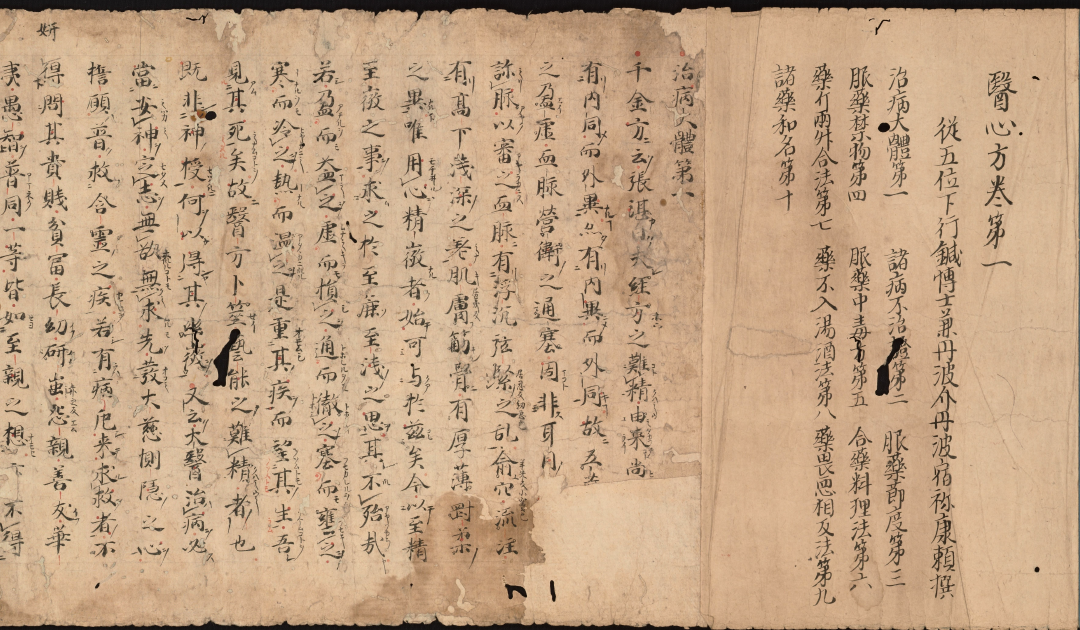 醫心方卷第一
從五位下行鍼博士兼丹波介丹波宿祢康頼撰
治病大體第一 諸病不治證第二 服藥節度第三
服藥禁物第四 服藥中毒方第五 合藥料理法第六
藥斤兩升合法第七 藥不入湯酒法第八 藥畏惡相反法第九
諸藥和名第十
治病大體第一
千金方云張湛曰夫經方之難精由來尚
有內同而外異有內異而外同故五
之盈虛血脉營衛之通塞固非耳目
診脉以審之血脉有浮沉弦緊之乱俞穴流注
有高下淺深之差肌膚筋骨有厚薄對柔
之異唯用心精微者始可与於茲矣今以至精
至微之事求之於至麁至淺之思其不殆哉
若盈而益之虛而損之通而徹之塞而壅之
寒而冷之熱而温之是重其疾而望其生吾
見其死矣故醫方卜筮藝能之難精者也
既非神授何以得其幽微又云大醫治病必
當安神定志無欲無求先發大慈惻隱之心
誓願普救含靈之疾若有病厄来求救者不
得問其貴賤貧冨長幼研蚩怨親善友華
夷愚智普同一等皆如至親之想亦不得
妍